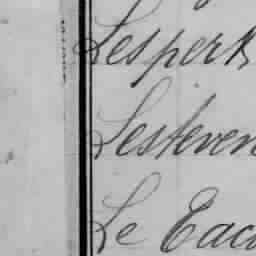 Lesperk
Lesteven
Le Eac